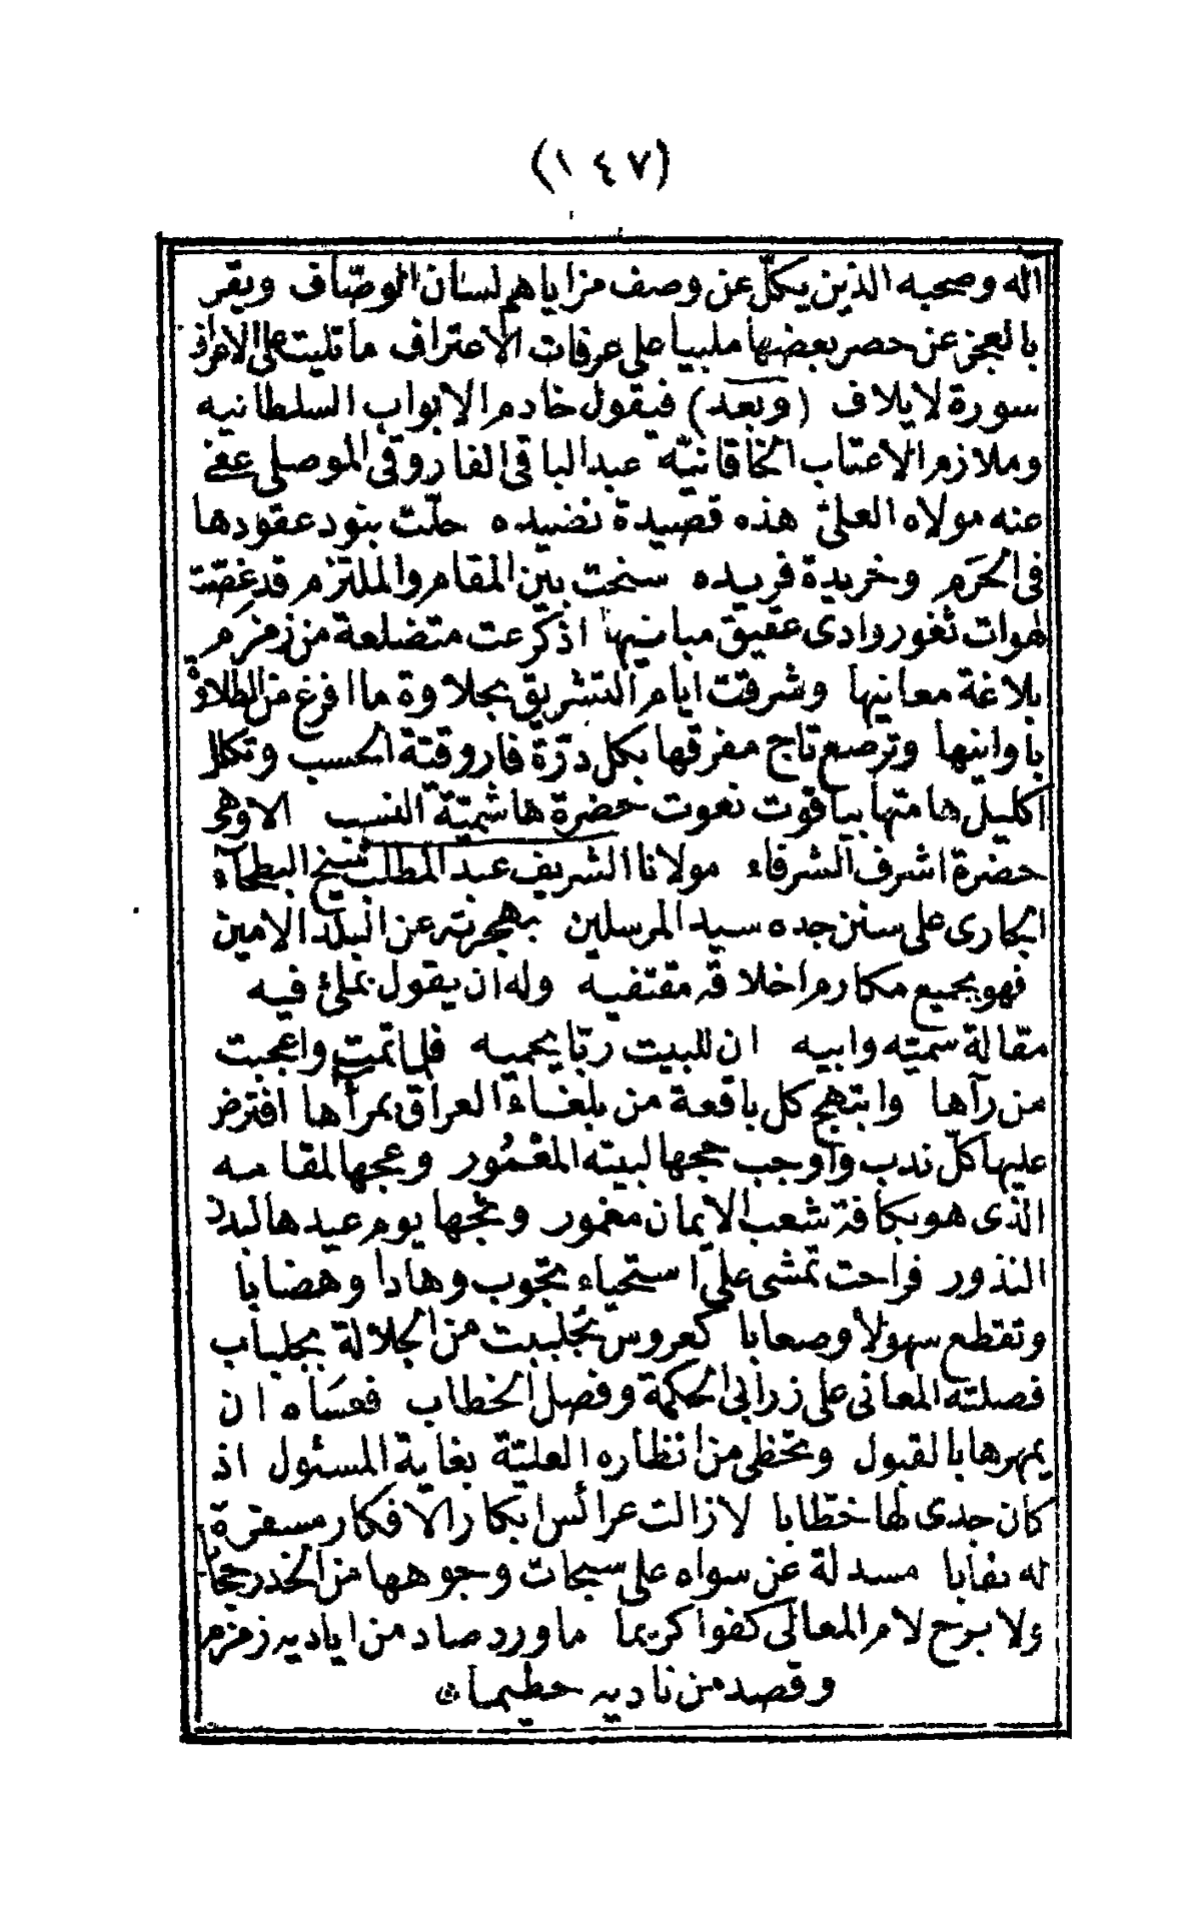 (١٤٧)
آله وصحبه الذين يكلّ عن وصف مزاياهم لسان الوصّاف ويقر
بالعجز عن حصر بعضها ملبيا على عرفات الاعتراف ماتليت على الاعراف
سورة لايلاف (وبعد) فيقول خادم الابواب السلطانيه
وملازم الاعتاب الخاقانيّه عبد الباقى الفاروقى الموصلى عفى
عنه مولاه العلىّ هذه قصيدة نضيده حلّت بنود عقودها
فى الحَرَم وخريدة فريده سنحت بين المقام والملتزم قد غصّت
لهوات ثغور وادى عقيق مبانيها اذ كرعت متضلعة من زمزم
بلاغة معانيها وشرقت ايام التشريق بحلاوة ما افرغ من الطلاوة
بأوانيها وترصع تاج مفرقها بكل درّة فاروقيّة الحسب وتكلل
اكليل هامتها بياقوت نعوت حضرة هاشميّة النسب الاوهى
حضرة اشرف الشرفاء مولانا الشريف عبد المطلب شيخ البطحآء
الجارى على سنن جده سيد المرسلين بهجرته عن البلد الامين
فهو بجميع مكارم اخلاقه مقتفيه وله ان يقول بملئ فيه
مقالة سميّه وابيه ان للبيت ربّا يحميه فلما تمت واعجبت
من رآها وابتهج كل باقعة من بلغاء العراق بمرآها افترض
عليها كلّ ندب واوجب حجها لبيته المعْمُور وعجها لمقامه
الذى هو بكافة شعب الايمان مغمور وثجها يوم عيدها لبدن
النذور فراحت تمشى علىّ استحياء تجوب وهادا وهضابا
وتقطع سهولاً وصعابا كعروس تجلببت من الجلالة بجلباب
فصلته المعانى على زرابى الحكمة وفصل الخطاب فعسَاه ان
يمهرها بالقبول وتحظى من انظاره العليّة بغاية المسئول اذ
كان جدى لها خطابا لازالت عرائس ابكار الافكار مسفرة
له نقابا مسدلة عن سواه على سبحات وجوهها من الخدر حجابا
ولا برح لام المعالى كفوا كريما ماورد صاد من اياديه زمزم
وقصد من ناديه حطيما